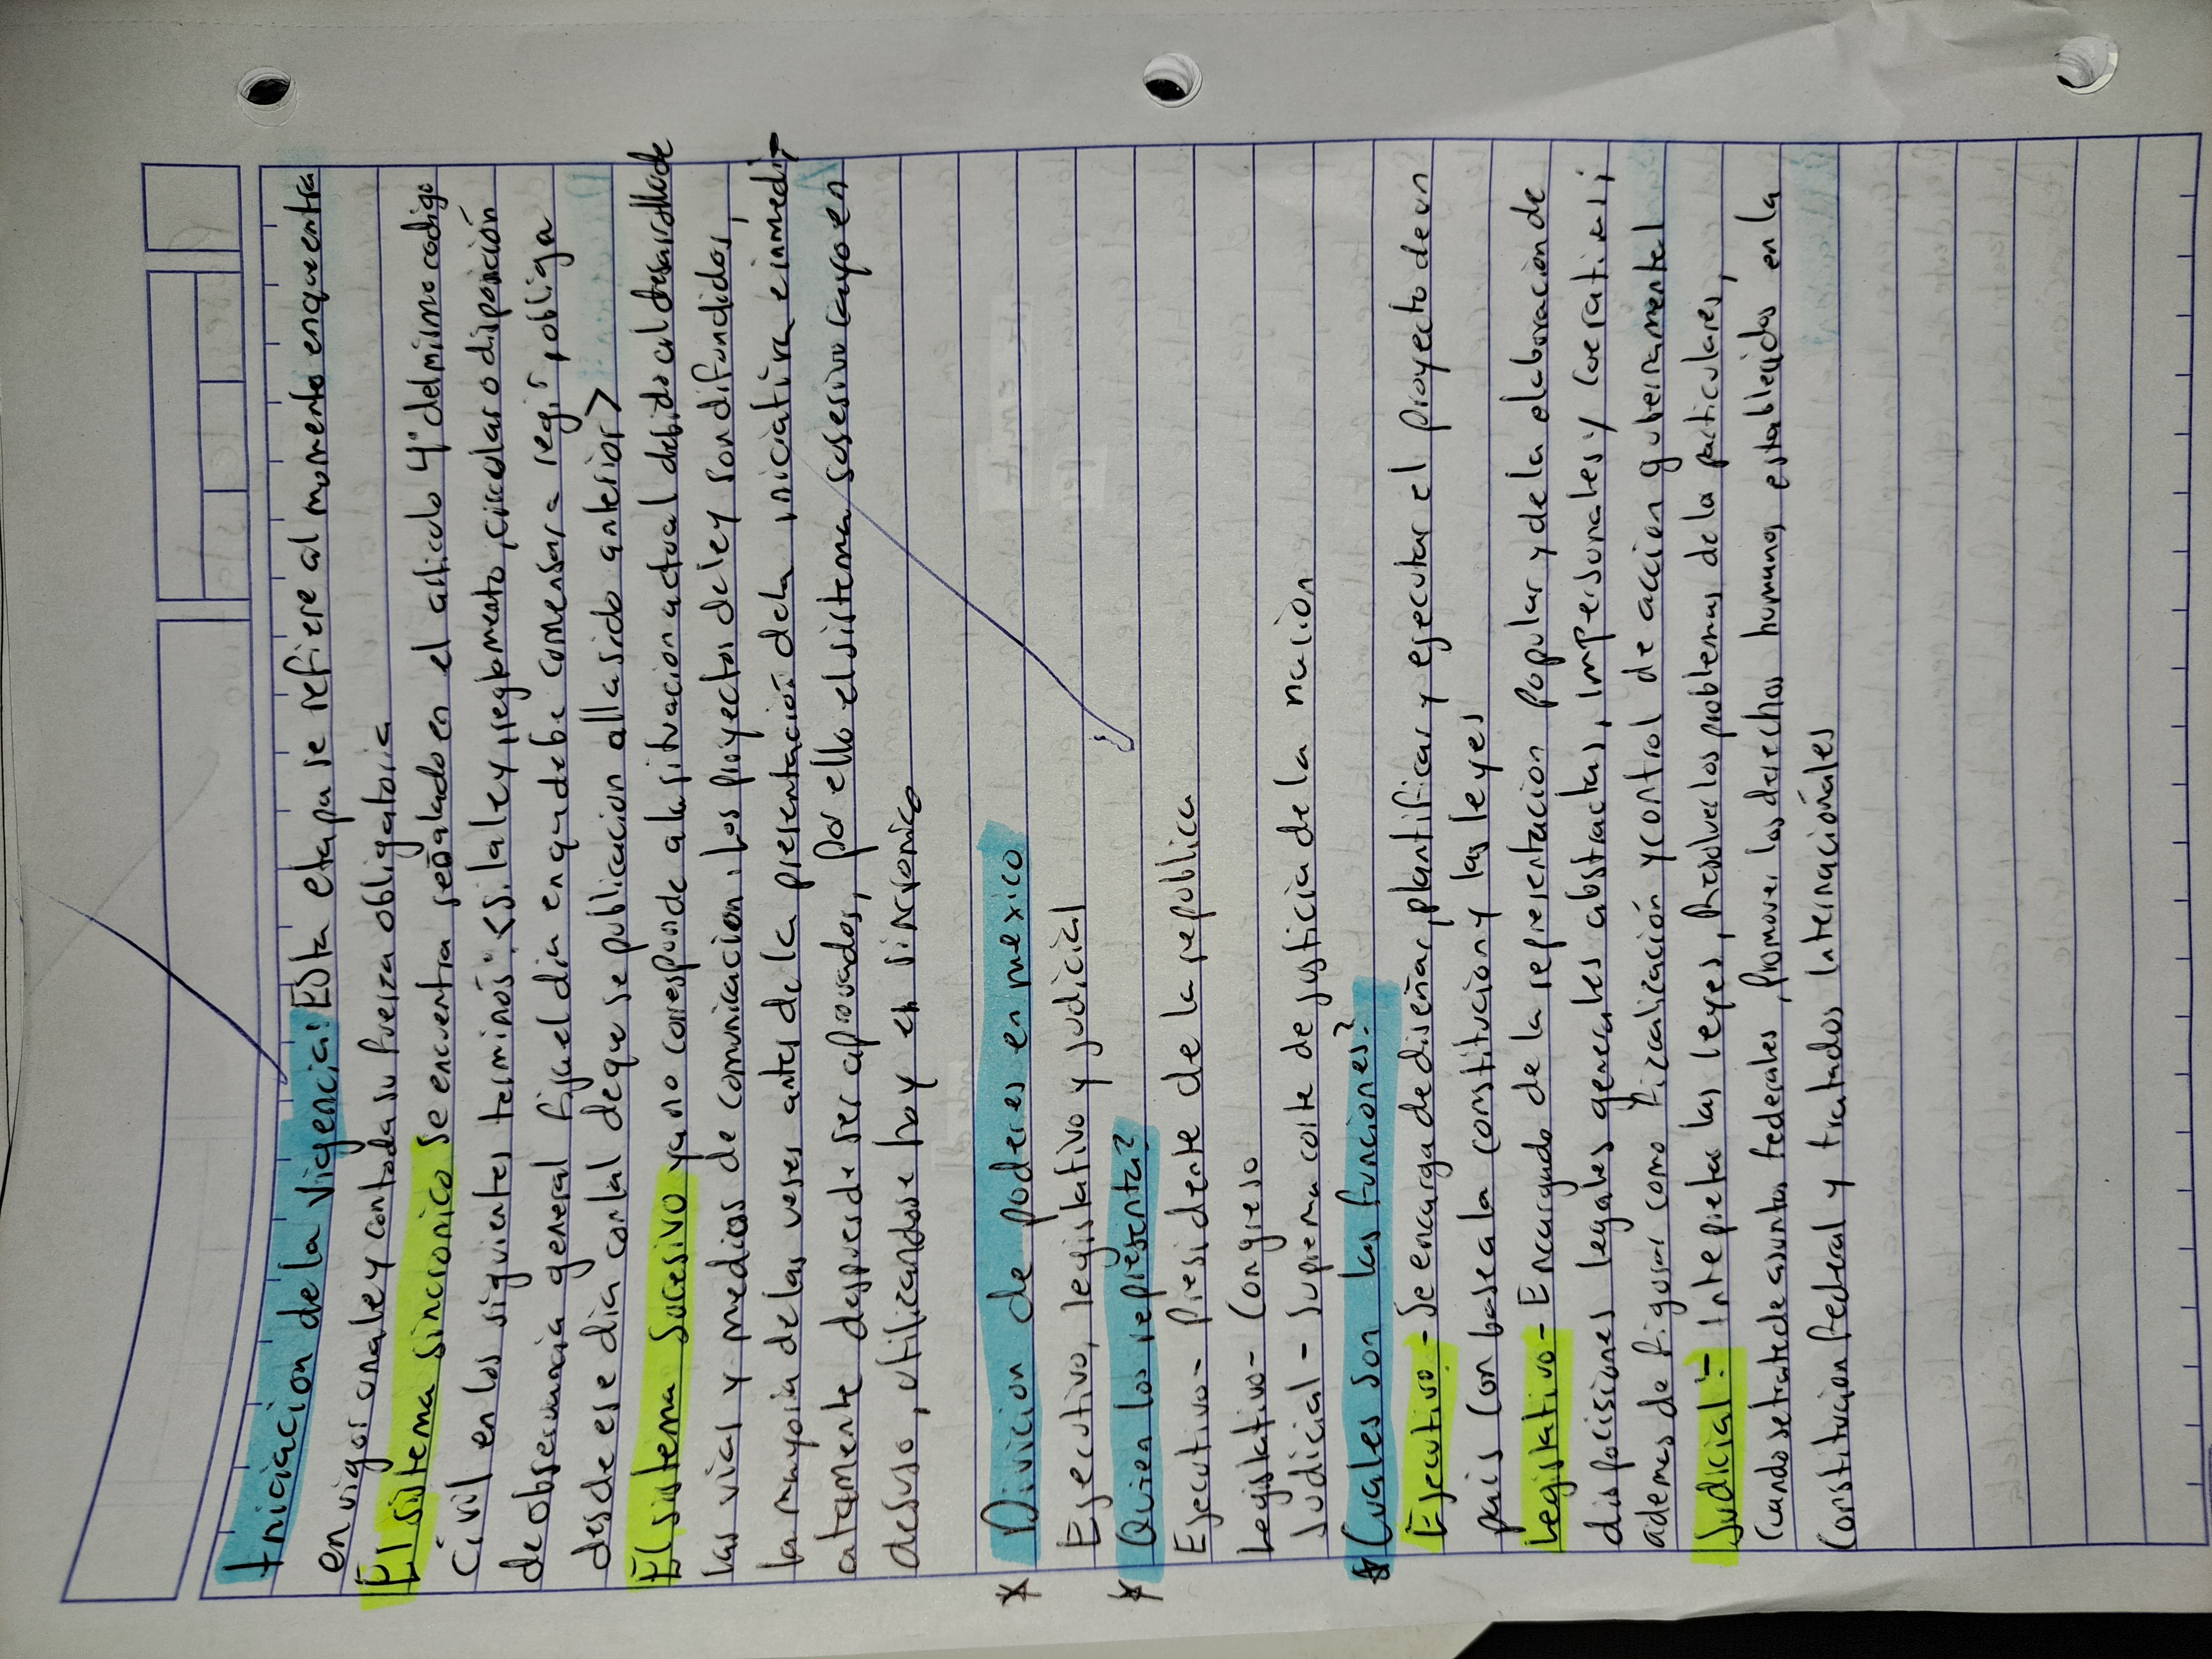 Iniciacion de la vigencia: Esta etapa se refiere al momento enque entra
en vigor una ley con toda su fuerza obligatoria
El sistema sincronico se encuentra señalado en el articulo 4° del mismo codigo
Civil en los siguientes terminos: <si la ley, reglamento, circular o disposición
de observancia general fija el dia en que debe comensar a regir, obliga
desde ese dia con tal de que se publicacion alla sido anterior>
El sistema Sucesivo ya no corresponde a la situacion actual debido al desarrollo de
las vias y medios de comunicacion. Los proyectos de ley son difundidos,
la mayoria de las veses antes de la presentación de la iniciativa e inmedi-
atamente despues de ser aprovados, por ello el sistema susesivo cayo en
desuso, utilizandose hoy el sincronico
* Divicion de poderes en mexico
Ejecutivo, legislativo y judicial
* Quien los representa?
Ejecutivo - Presidente de la republica
Legislativo - Congreso
Judicial - Suprema corte de justicia de la nacion
* Cuales son las funciones?
Ejecutivo - Se encarga de diseñar, plantificar y ejecutar el proyecto de un
pais con base a la constitucion y las leyes
Legislativo - Encargado de la representacion popular y de la elaboracion de
disposisiones legales generales abstractas, impersonales y coerativas;
ademas de figurar como fizcalización y control de accion gubernamental
Judicial - Intepreta las leyes, Resolver los problemas de la particulares,
Cuando se trate de asuntos federales, Promover los derechos humanos establecidos en la
Constitucion federal y tratados internacionales